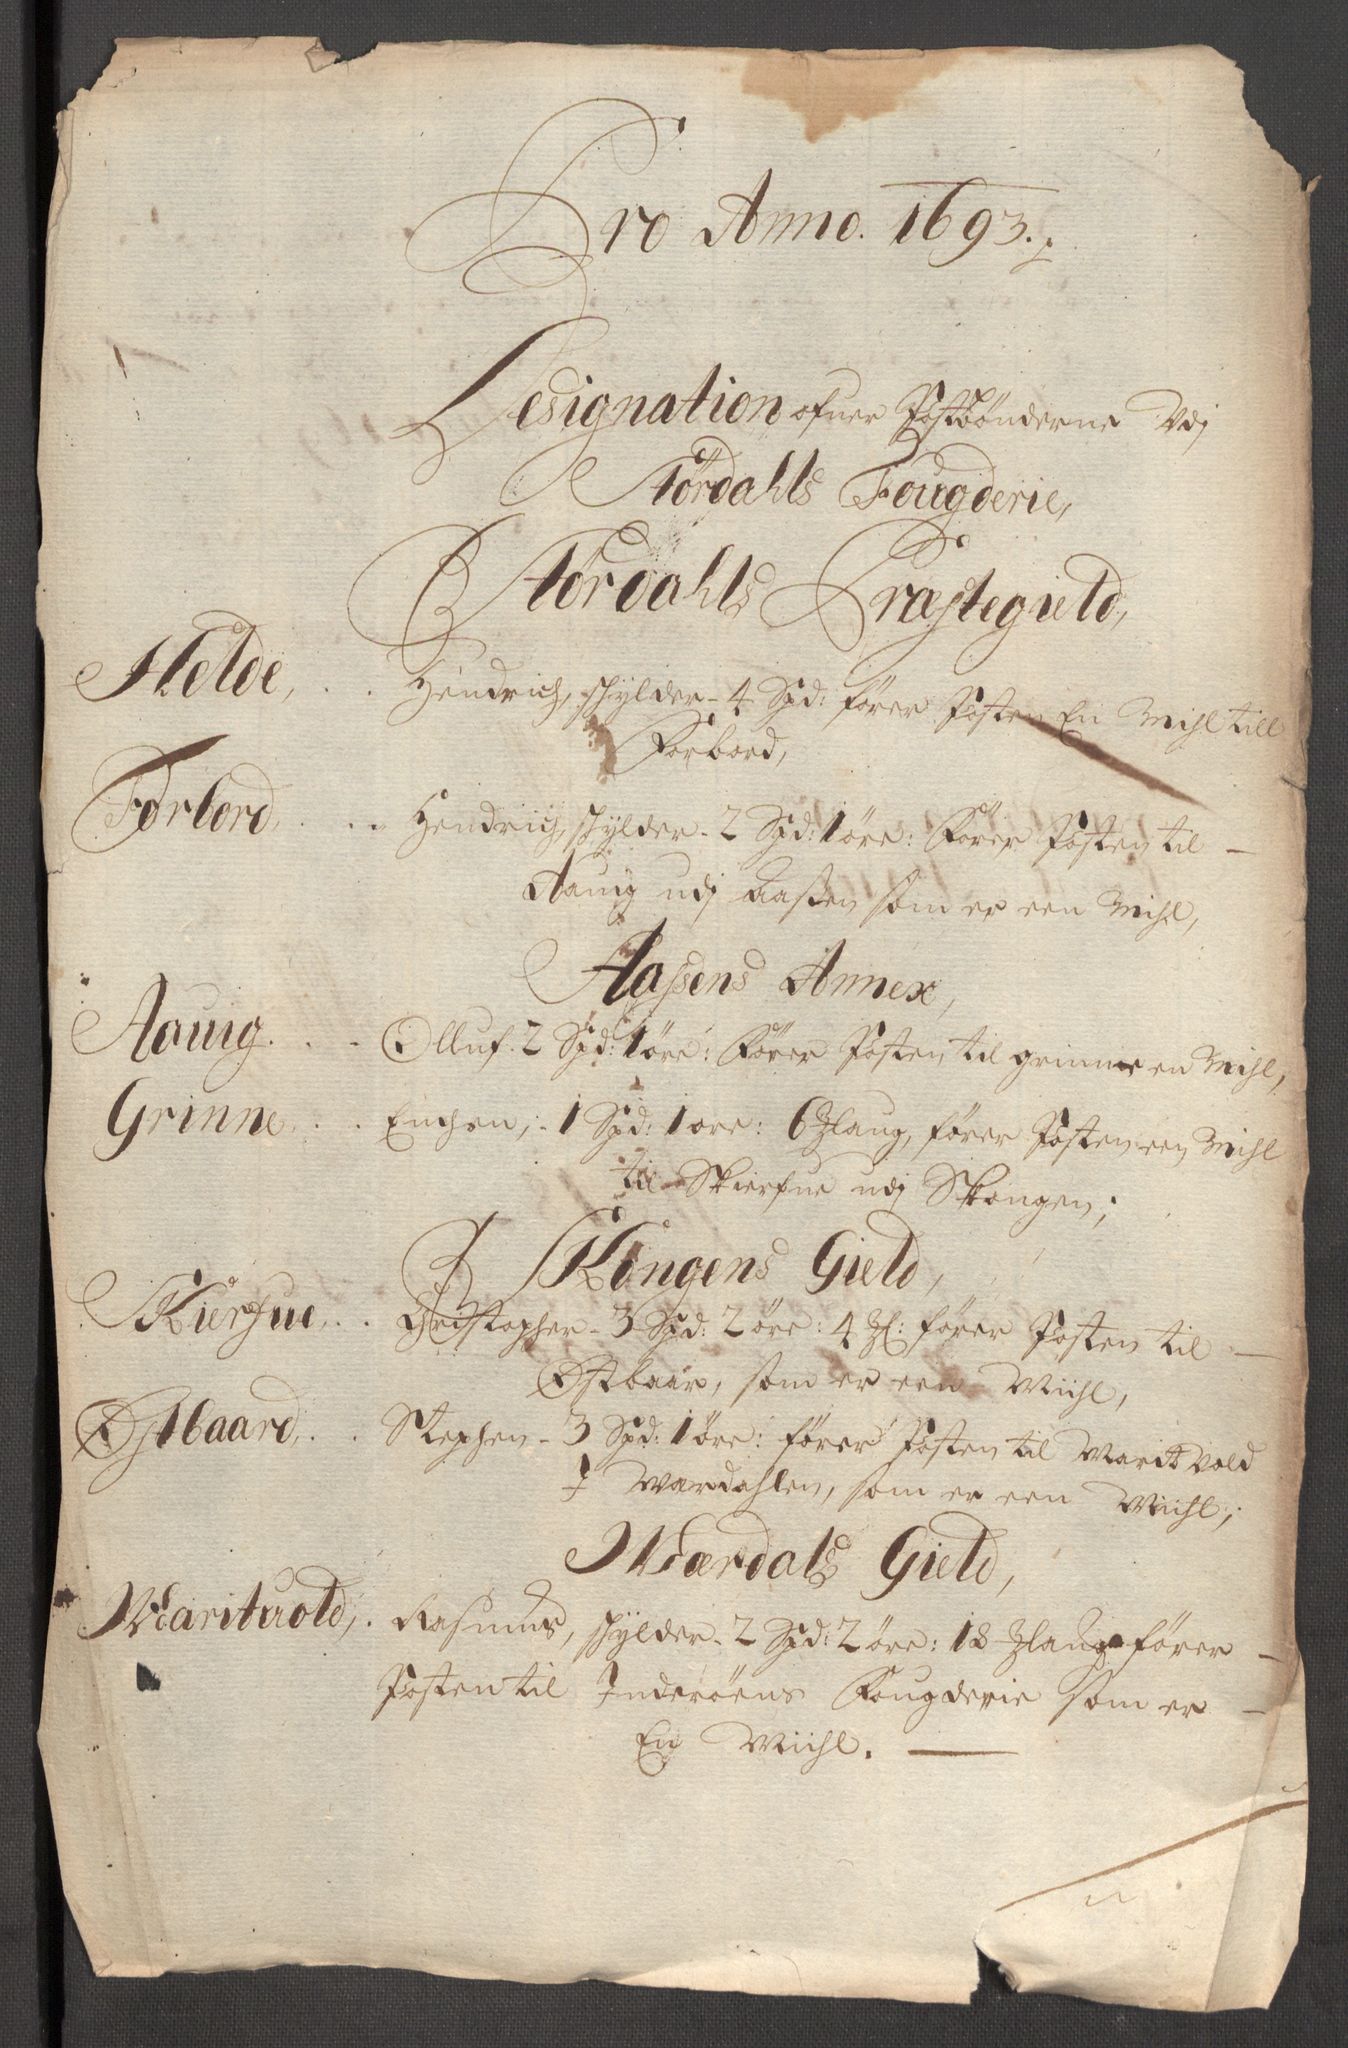 Pro Anno. 1693.
Designation ofuer Postbønderne Vdj
Størdahls Fougderie,
Størdahls Præstegield,
Helde, . . Hendrich, schylder - 4 Spd: fører Posten En Mihl till
Forbord,
Forbord, . . . Hendrich, schylder - 2 Spd: 1 øre: Fører Posten til —
Aauig udj Aassen som er een Mihl,
Aassens Annex,
Aauig. . . Olluf. 2 Spd: 1 øre: Fører Posten til grinne en Mihl,
Grinne. . . Enchen, - 1 Spd: 1 øre: 6 Zlaug, fører Posten een Mihl
til Skierfue udj Skongen;
SKöngens Gield,
SKierfue, . . Christopher - 3 Spd: 2 øre: 4 Zl: fører Posten til —
Østbaar, som er een Miihl,
Østbaard, . . Stephen - 3 Spd: 1 øre: fører Posten til Marit Vold
J Wærdahlen, som er een Miihl;
Wærdals Gield,
Marituold, . Rasmus, schylder - 2 Spd: 2 øre: 18 Zlaug fører —
Posten til Inderøens Fougderie som er —
En Miihl. —